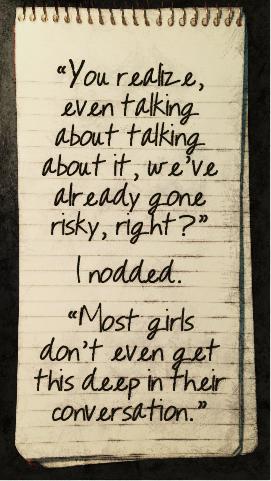 “You realize,
even talking
about talking
about it, we’ve
already gone
risky, right?”
I nodded.
“Most girls
don’t even get
this deep in their
conversation.”